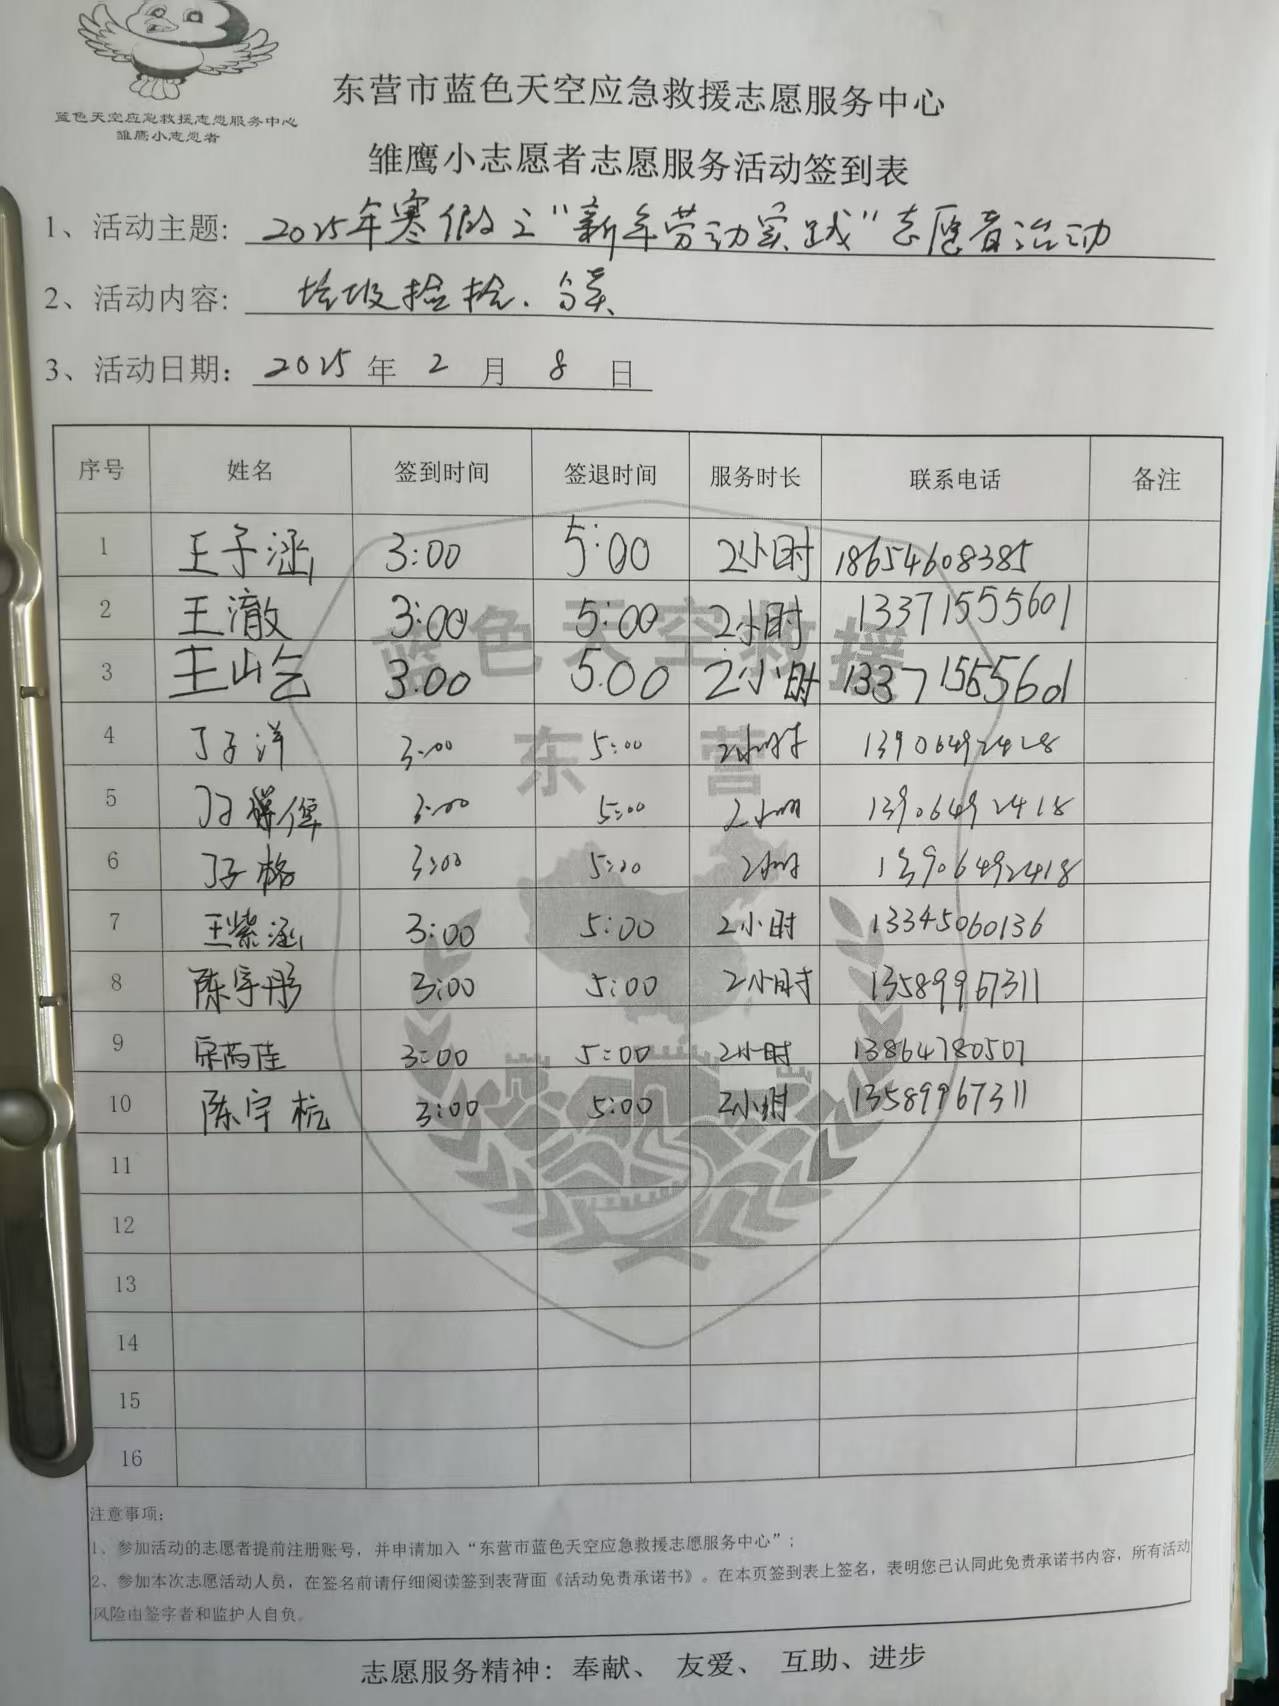 蓝色天空应急救援志愿服务中心
雏鹰小志愿者
东营市蓝色天空应急救援志愿服务中心
雏鹰小志愿者志愿服务活动签到表
1、活动主题: 2025年寒假之"新年劳动实践"志愿者活动
2、活动内容: 垃圾捡拾、分类
3、活动日期: 2025 年 2 月 8 日
序号 姓名 签到时间 签退时间 服务时长 联系电话 备注
1 王子涵 3:00 5:00 2小时 18654608385
2 王澈 3:00 5:00 2小时 13371555601
3 王山 3.00 5.00 2小时 13371555601
4 丁子洋 3:00 5:00 2小时 13906492418
5 丁子 3:00 5:00 2小时 13906492418
6 丁子格 3:00 5:00 2小时 13906492418
7 王紫涵 3:00 5:00 2小时 13345060136
8 陈宇彤 3:00 5:00 2小时 13589967311
9 宗芮莲 3:00 5:00 2小时 13864780507
10 陈宇杭 3:00 5:00 2小时 13589967311
11
12
13
14
15
16
蓝色天空救援
东营
注意事项:
1、参加活动的志愿者提前注册账号，并申请加入“东营市蓝色天空应急救援志愿服务中心”;
2、参加本次志愿活动人员，在签名前请仔细阅读签到表背面《活动免责承诺书》。在本页签到表上签名，表明您已认同此免责承诺书内容，所有活动
风险由签字者和监护人自负。
志愿服务精神: 奉献、 友爱、 互助、进步